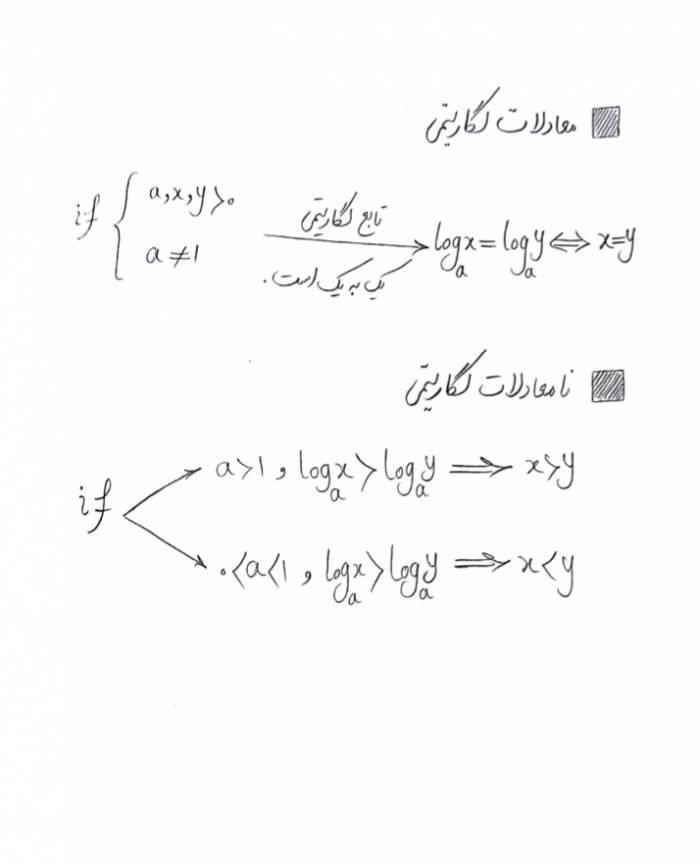 معادلات لگاریتمی
if { a,x,y>۰
a≠1
تابع لگاریتمی
یک به یک است.
logₐx = logₐy ⇔ x=y
نامعادلات لگاریتمی
if
a>1 , logₐx > logₐy ⇒ x>y
۰<a<1 , logₐx > logₐy ⇒ x<y